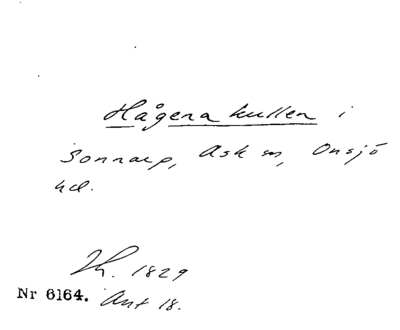 Hågena kullen i
Sonnarp, Ask sn, Onsjö
hd.
Th. 1829
Nr 6164. Ant 18.